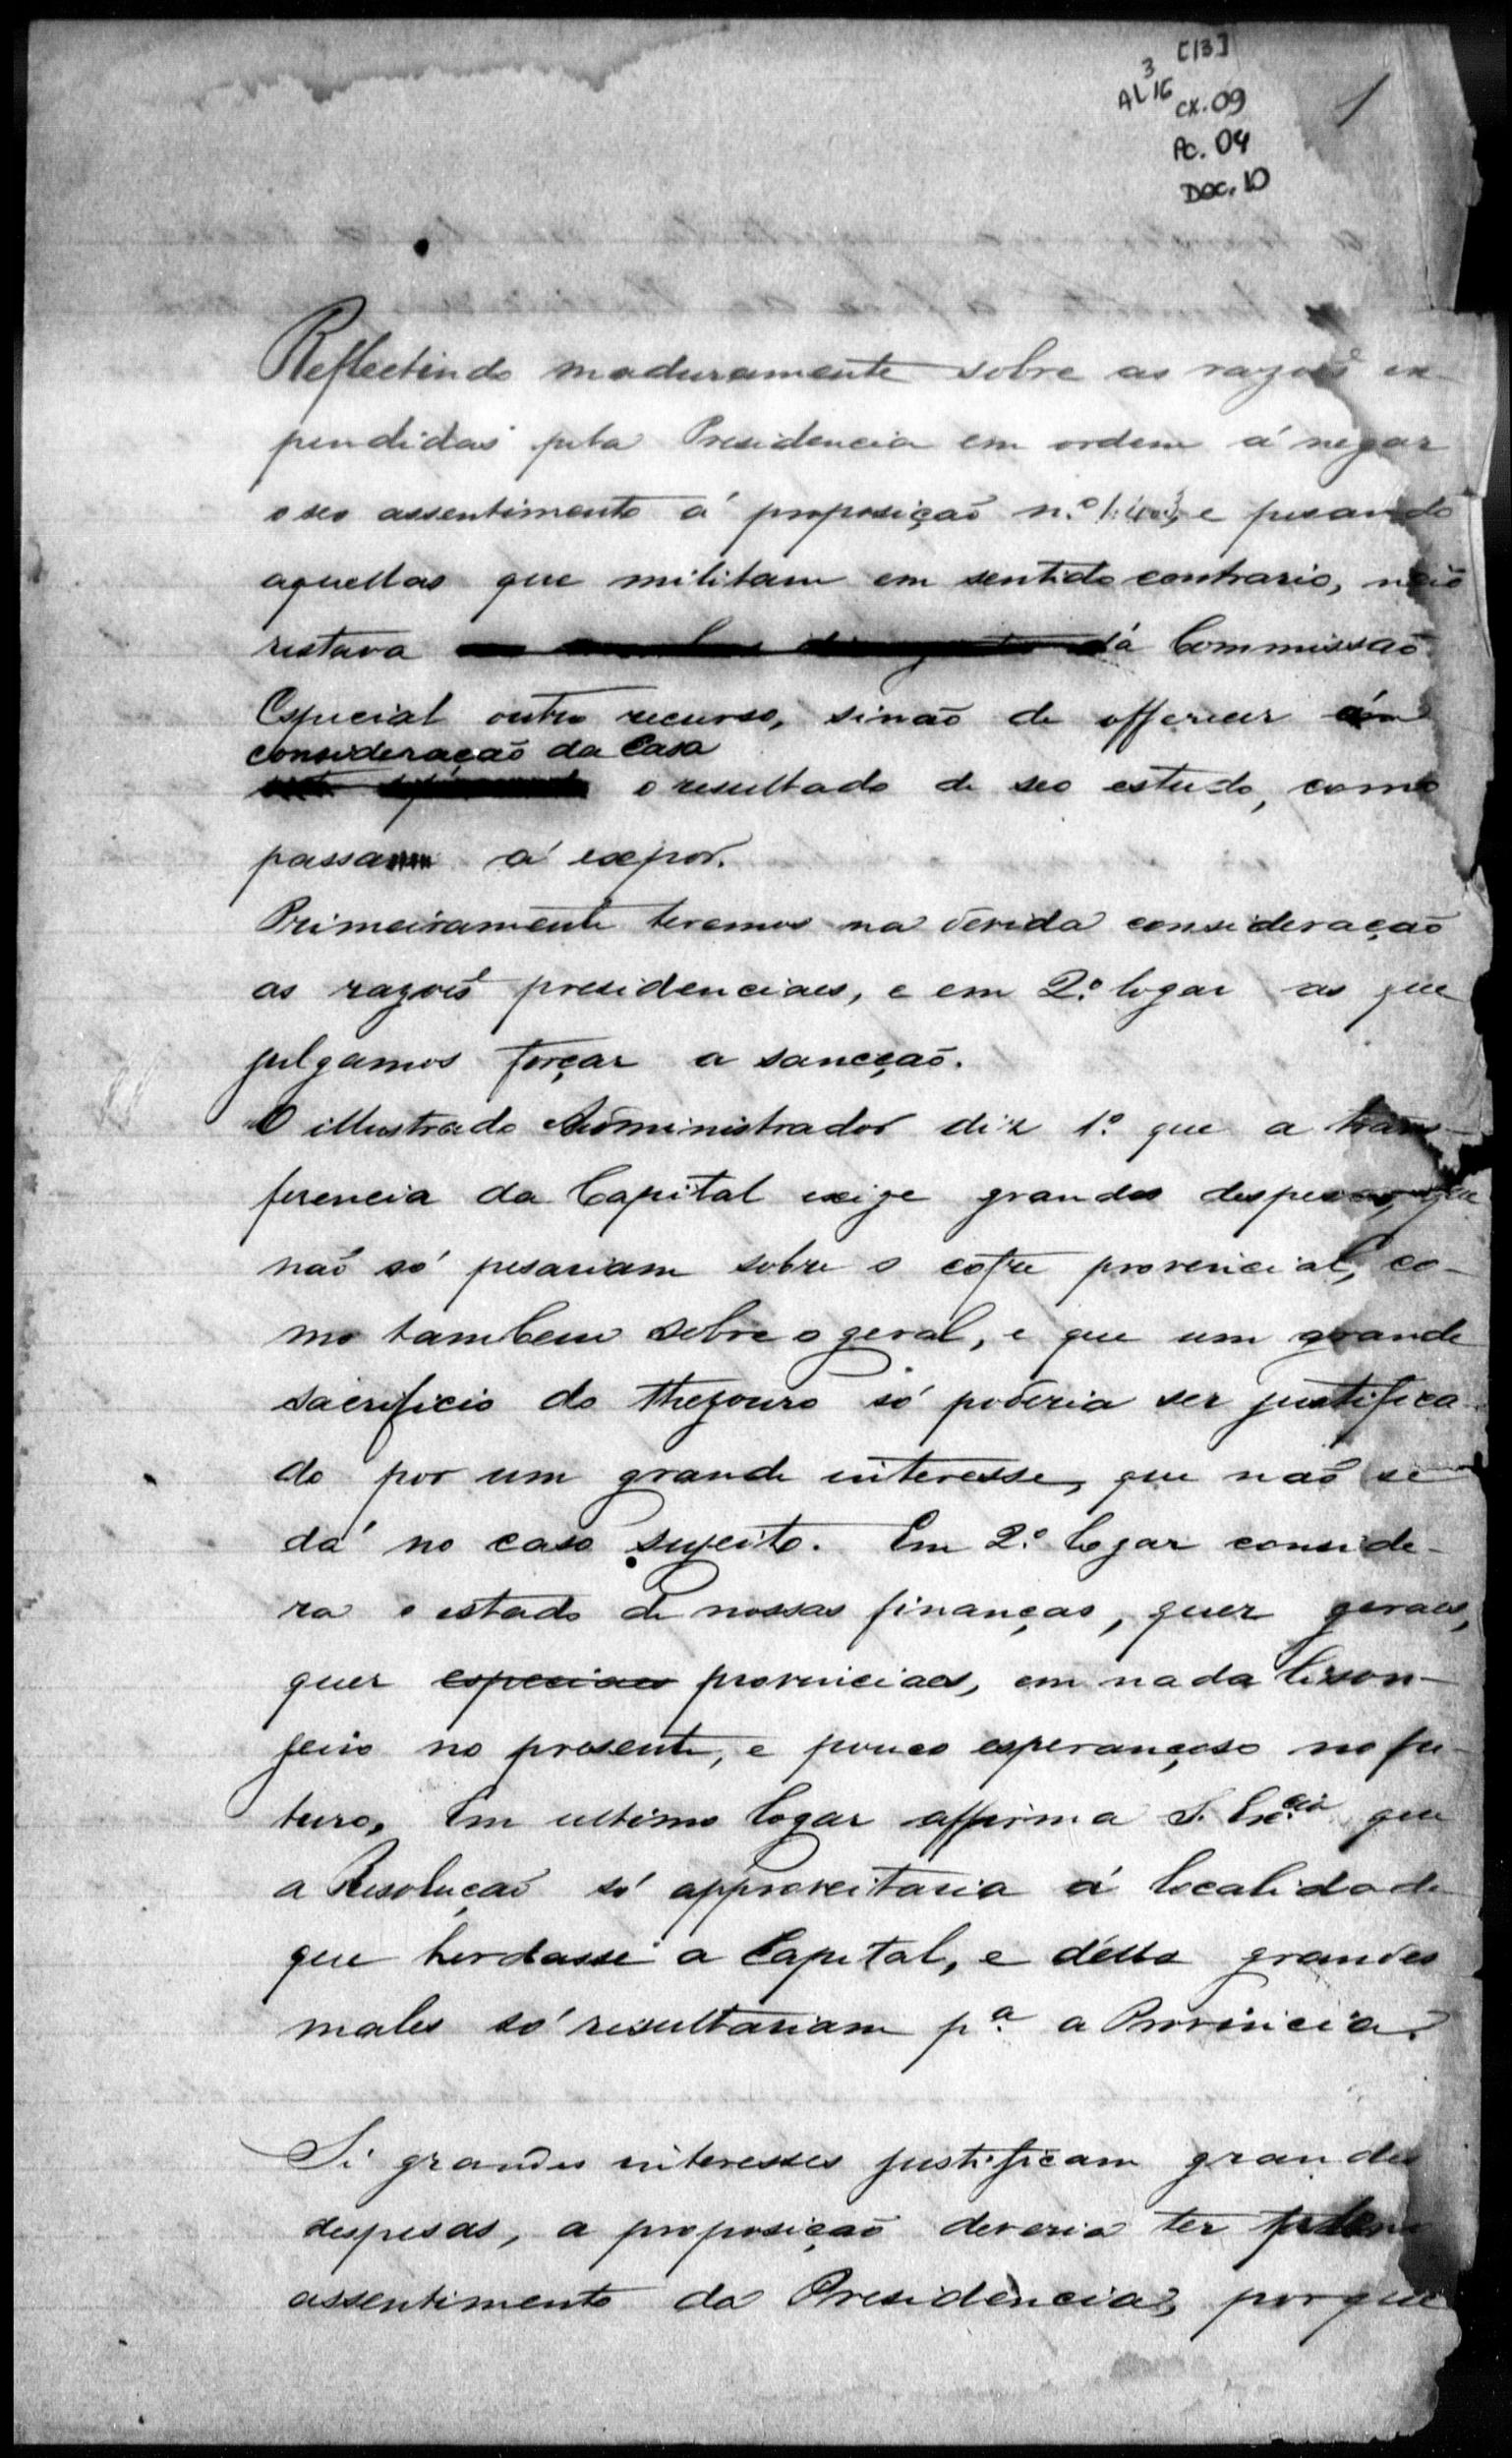 [13]
3
AL16
cx. 09
Pc. 04
Doc. 10
1
Reflectindo maduramente sobre as razoẽs ex-
pendidas pela Presidencia em ordem á negar
o seo assentimento á proposição n.º e pesando
aquellas que militam em sentido contrario, não
restava á Commissaõ
Especial outro recurso, sinaõ de offerecer á
consideraçaõ da Casa
o resultado de seo estudo, como
passa á expor.
Primeiramente teremos na devida consideraçaõ
as razoẽs presidenciaes, e em 2.º logar as que
julgamos forçar a sancçaõ.
O illustrado Administrador diz 1.º que a trans-
ferencia da Capital exige grandes despesas, que
naõ só pesariam sobre o cofre provincial, co-
mo tambem sobre o geral, e que um grande
sacrificio do Thezouro só poderia ser justifica-
do por um grande interesse, que naõ se
dá no caso sujeito. Em 2.º logar conside-
ra o estado de nossas finanças, quer geraes,
quer especiaes provinciaes, em nada lison-
geiro no presente, e pouco esperançoso no fu-
turo. Em ultimo logar affirma S. Ex.cia que
a Resoluçaõ só approveitaria á localidade
que herdasse a Capital, e della grandes
males só resultariam p.ª a Provincia.
Si grandes interesses justificam grandes
despesas, a proposiçaõ deveria ter
assentimento da Presidencia, porque